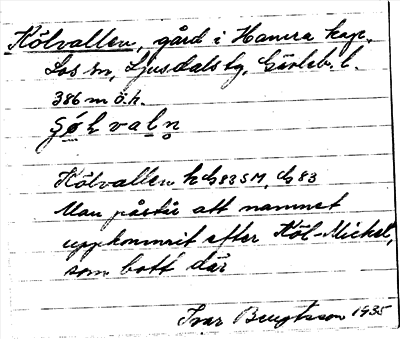 Kölvallen, gård i Hamra kap.
Los sn, Ljusdals tg, Gävleb. l.
386 m ö.h.
Kölvallen
Man påstår att namnet
uppkommit efter Köl-Mickel,
som bott där
Ivar Bengtsson 1935